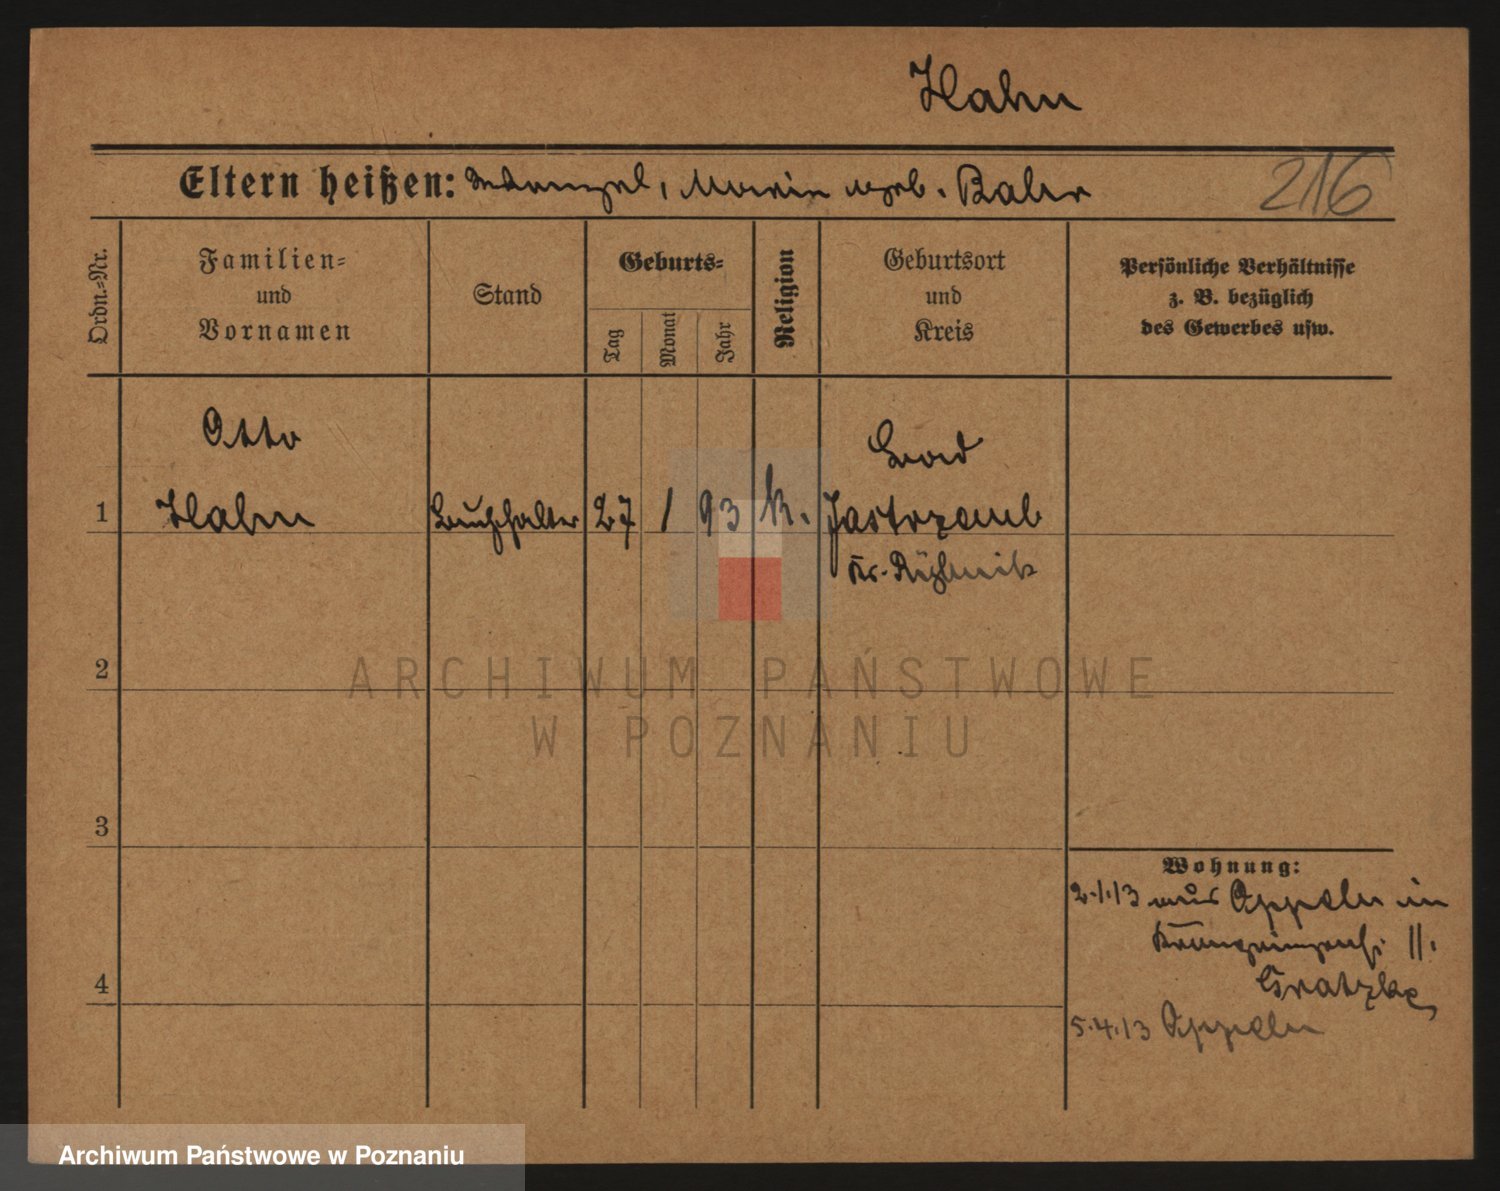 Hahn
Eltern heißen: Marie geb. Bahr
216
Ordn.-Nr.
Familien-
und
Vornamen
Stand
Geburts-
Tag
Monat
Jahr
Religion
Geburtsort
und
Kreis
Persönliche Verhältnisse
z. B. bezüglich
des Gewerbes usw.
Otto
1 Hahn Buchhalter 27 1 93 k. Bad
Jastrzemb
Kr. Rybnik
2
3
4
Wohnung:
2.1.13 aus Oppeln in
11.
Gratzke
5.4.13 Oppeln
ARCHIWUM PAŃSTWOWE
W POZNANIU
Archiwum Państwowe w Poznaniu